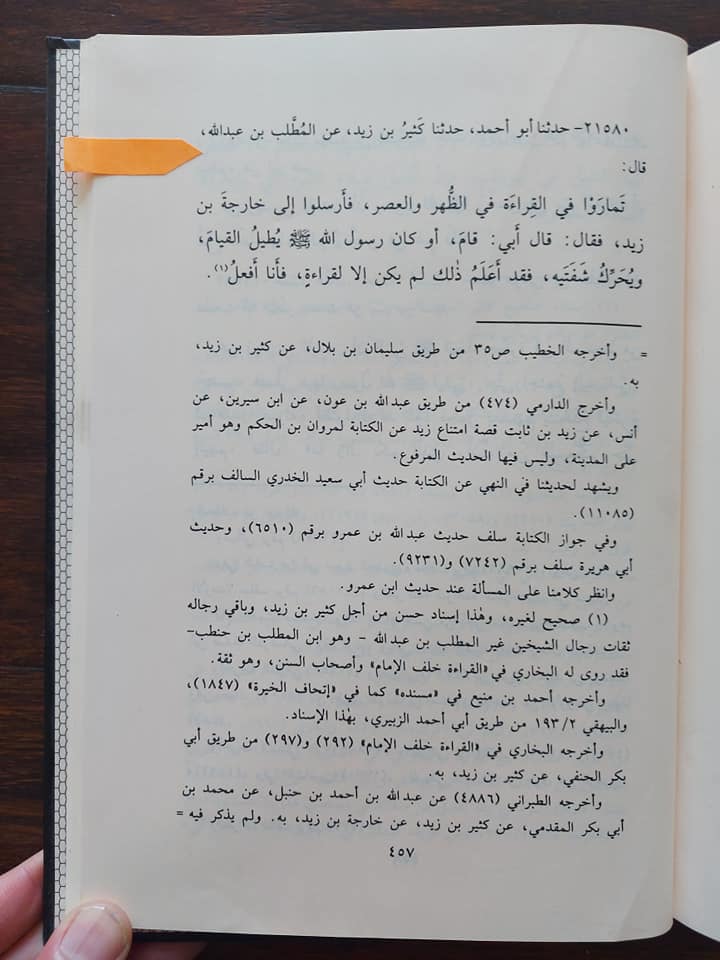 ٢١٥٨٠- حدثنا أبو أحمد، حدثنا كَثيرُ بن زيد، عن المُطَّلب بن عبدالله،
قال:
تَمارَوْا في القِراءَة في الظُّهر والعصر، فأَرسلوا إلى خارجةَ بن
زيد، فقال: قال أَبي: قامَ، أو كان رسول الله ﷺ يُطيلُ القيامَ،
ويُحَرِّكُ شَفَتَيه، فقد أَعَلَمُ ذٰلك لم يكن إلا لقراءةٍ، فأَنا أَفعلُ(١).
= وأخرجه الخطيب ص٣٥ من طريق سليمان بن بلال، عن كثير بن زيد،
به.
وأخرج الدارمي (٤٧٤) من طريق عبدالله بن عون، عن ابن سيرين، عن
أنس، عن زيد بن ثابت قصة امتناع زيد عن الكتابة لمروان بن الحكم وهو أمير
على المدينة، وليس فيها الحديث المرفوع.
ويشهد لحديثنا في النهي عن الكتابة حديث أبي سعيد الخدري السالف برقم
(١١٠٨٥).
وفي جواز الكتابة سلف حديث عبدالله بن عمرو برقم (٦٥١٠)، وحديث
أبي هريرة سلف برقم (٧٢٤٢) و(٩٢٣١).
وانظر كلامنا على المسألة عند حديث ابن عمرو.
(١) صحيح لغيره، وهٰذا إسناد حسن من أجل كثير بن زيد، وباقي رجاله
ثقات رجال الشيخين غير المطلب بن عبدالله - وهو ابن المطلب بن حنطب-
فقد روى له البخاري في «القراءة خلف الإمام» وأصحاب السنن، وهو ثقة.
وأخرجه أحمد بن منيع في «مسنده» كما في «إتحاف الخيرة» (١٨٤٧)،
والبيهقي ١٩٣/٢ من طريق أبي أحمد الزبيري، بهٰذا الإسناد.
وأخرجه البخاري في «القراءة خلف الإمام» (٢٩٢) و(٢٩٧) من طريق أبي
بكر الحنفي، عن كثير بن زيد، به.
وأخرجه الطبراني (٤٨٨٦) عن عبدالله بن أحمد بن حنبل، عن محمد بن
أبي بكر المقدمي، عن كثير بن زيد، عن خارجة بن زيد، به. ولم يذكر فيه =
٤٥٧